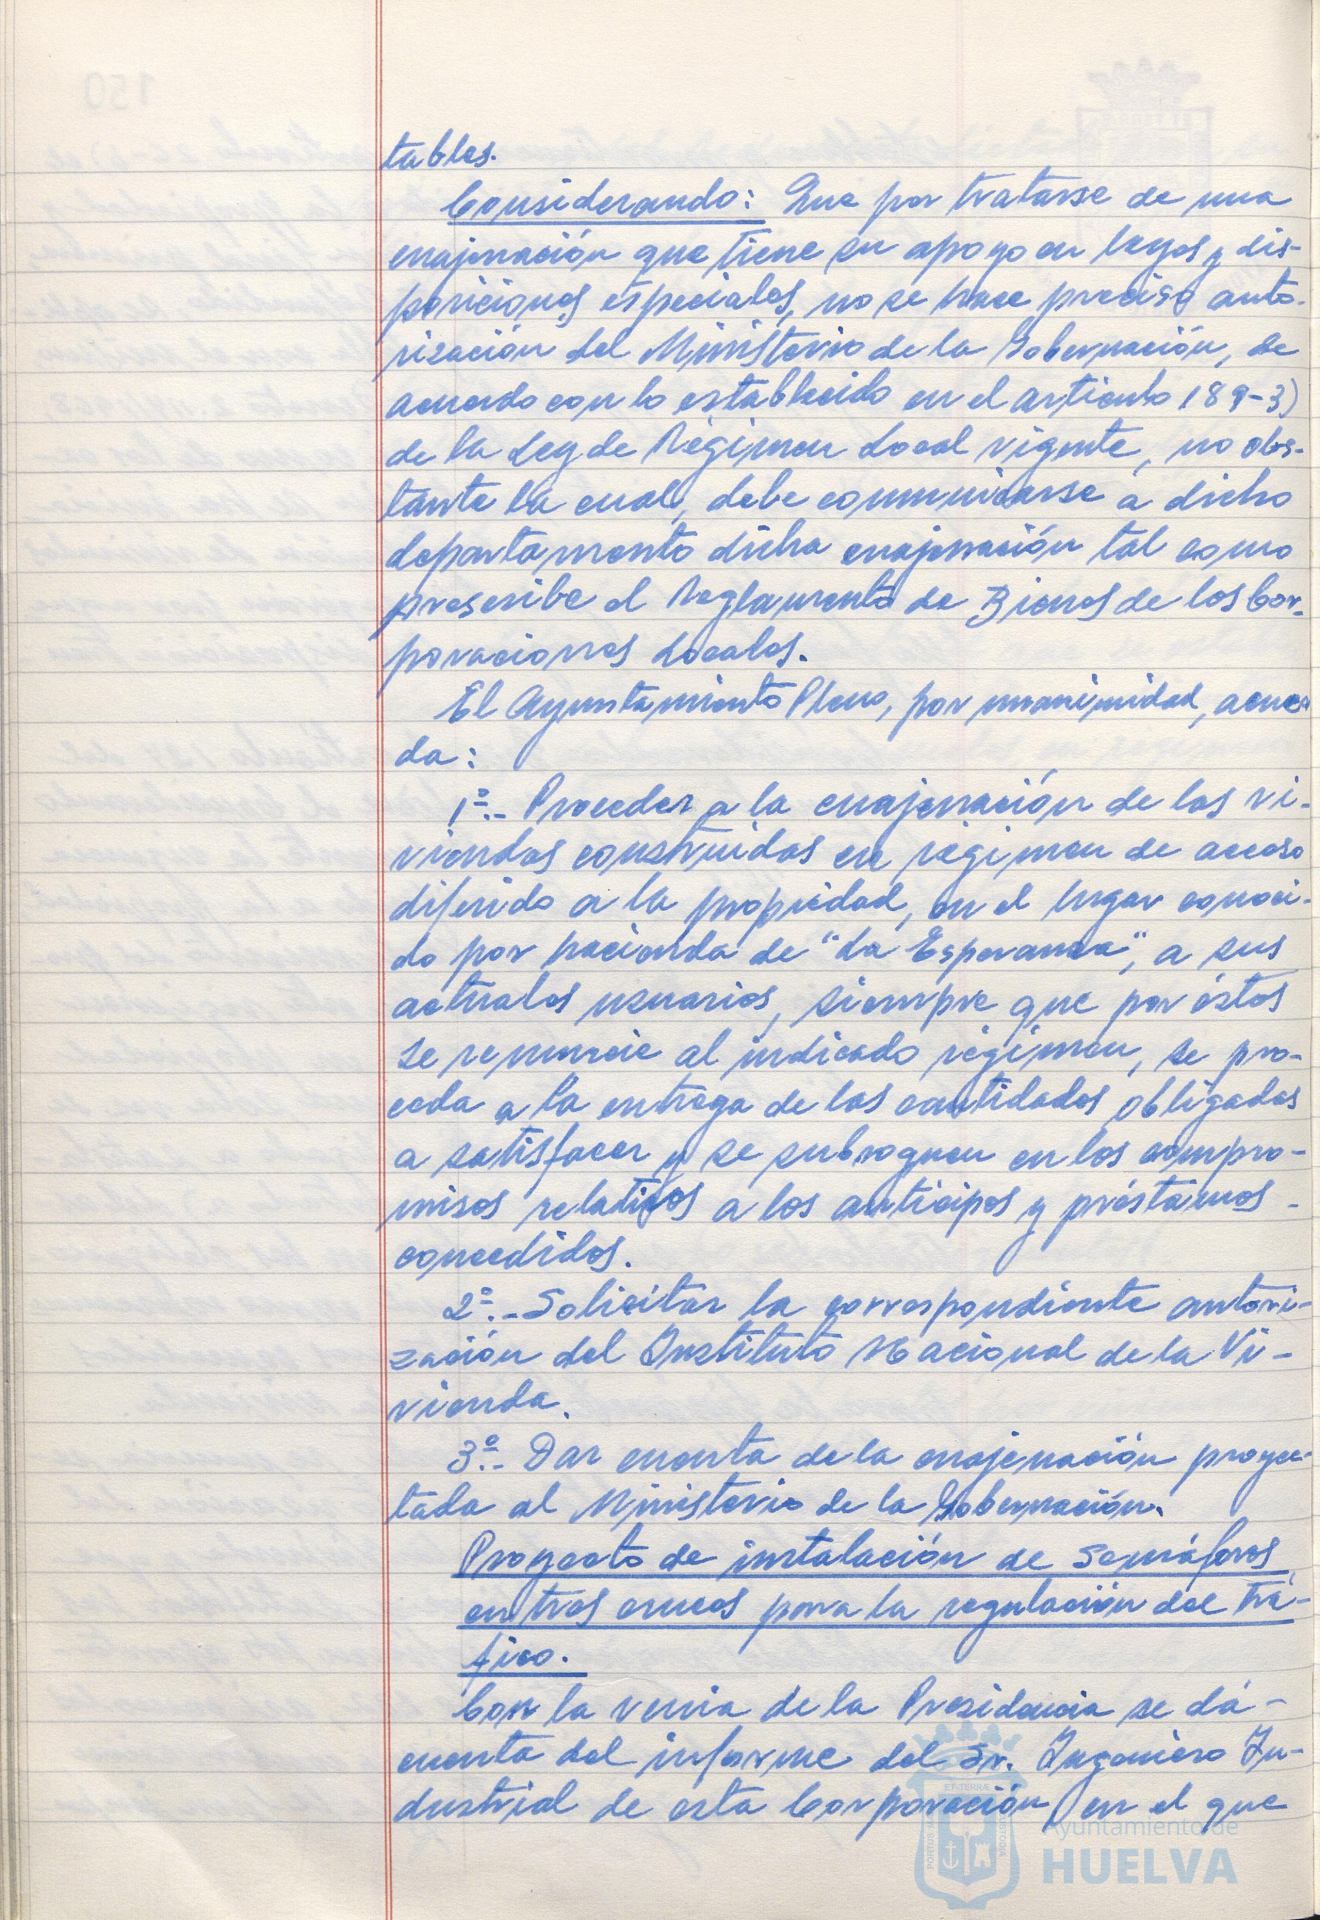 tables.
Considerando: Que por tratarse de una
enajenación que tiene su apoyo en leyes y dis-
posiciones especiales, no se hace preciso auto-
rización del Ministerio de la Gobernación, de
acuerdo con lo establecido en el artículo 189-3)
de la Ley de Régimen Local vigente, no obs-
tante la cual, debe comunicarse a dicho
departamento dicha enajenación tal como
prescribe el Reglamento de Bienes de las Cor-
poraciones Locales.
El Ayuntamiento Pleno, por unanimidad, acuer
da:
1º.- Proceder a la enajenación de las vi-
viendas construidas en régimen de acceso
diferido a la propiedad, en el lugar conoci-
do por hacienda de "La Esperanza", a sus
actuales usuarios, siempre que por éstos
se renuncie al indicado régimen, se pro-
ceda a la entrega de las cantidades obligadas
a satisfacer y se subroguen en los compro-
misos relativos a los anticipos y préstamos -
concedidos.
2º.- Solicitar la correspondiente autori-
zación del Instituto Nacional de la Vi-
vienda.
3º.- Dar cuenta de la enajenación proyec-
tada al Ministerio de la Gobernación.
Proyecto de instalación de semáforos
en tres cruces para la regulación del trá-
fico.
Con la venia de la Presidencia se dá -
cuenta del informe del Sr. Ingeniero In-
dustrial de esta Corporación, en el que
Ayuntamiento de
HUELVA